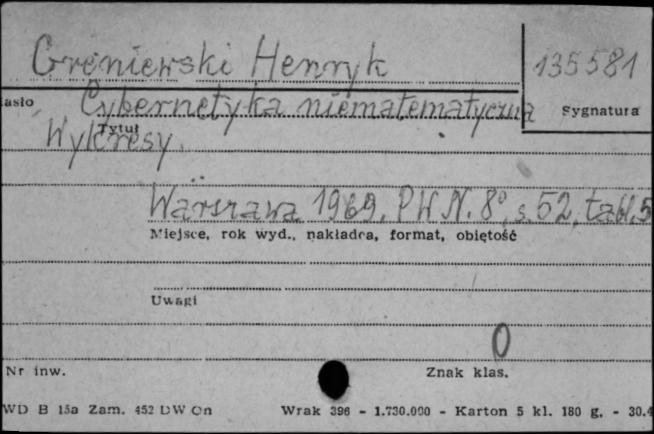 Greniewski Henryk
135581
asło
Cybernetyka niematematyczna
Sygnatura
Tytuł
Wykresy.
Warszawa 1969. PWN. 8° s. 52, tabl. 5
Miejsce, rok wyd., nakładca, format, obiętość
Uwagi
0
Nr inw.
Znak klas.
WD B 15a Zam. 452 DW On
Wrak 396 - 1.730.000 - Karton 5 kl. 180 g. - 30.4